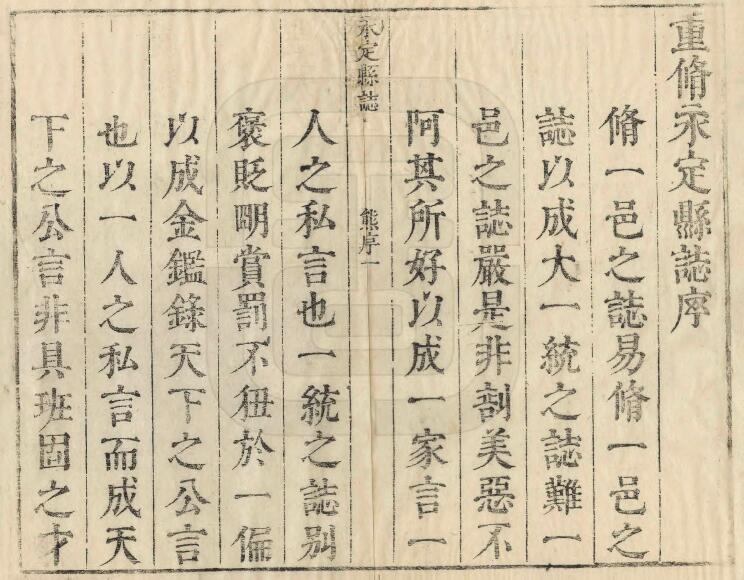 重脩永定縣誌序
脩一邑之誌易脩一邑之
誌以成大一統之誌難一
邑之誌嚴是非剖美惡不
阿其所好以成一家言一
永定縣誌
熊序一
人之私言也一統之誌別
褒貶明賞罰不狃於一偏
以成金鑑錄天下之公言
也以一人之私言而成天
下之公言非具班固之才